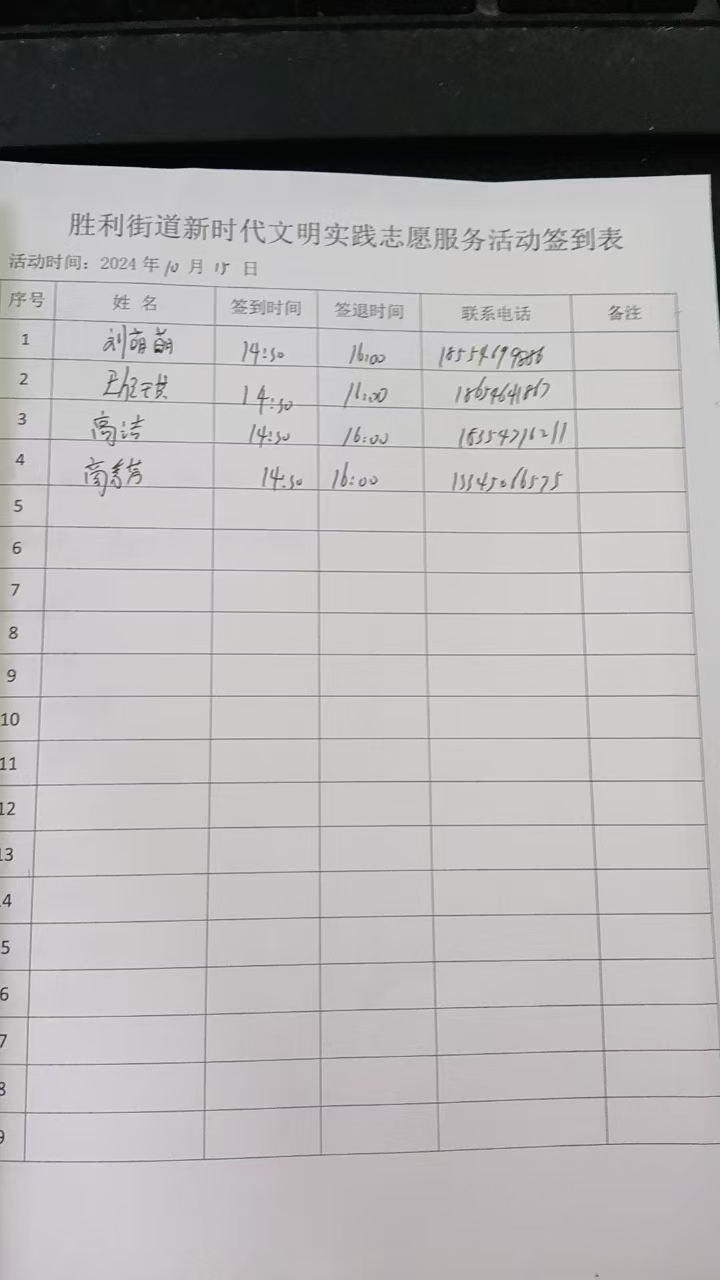 胜利街道新时代文明实践志愿服务活动签到表
活动时间：2024年10月15日
序号 姓 名 签到时间 签退时间 联系电话 备注
1 刘萌萌 14:30 16:00 18554699886
2 14:30 16:00 18654641867
3 高洁 14:30 16:00 18354716211
4 14:30 16:00 13345066575
5
6
7
8
9
10
11
12
13
4
5
6
7
8
9